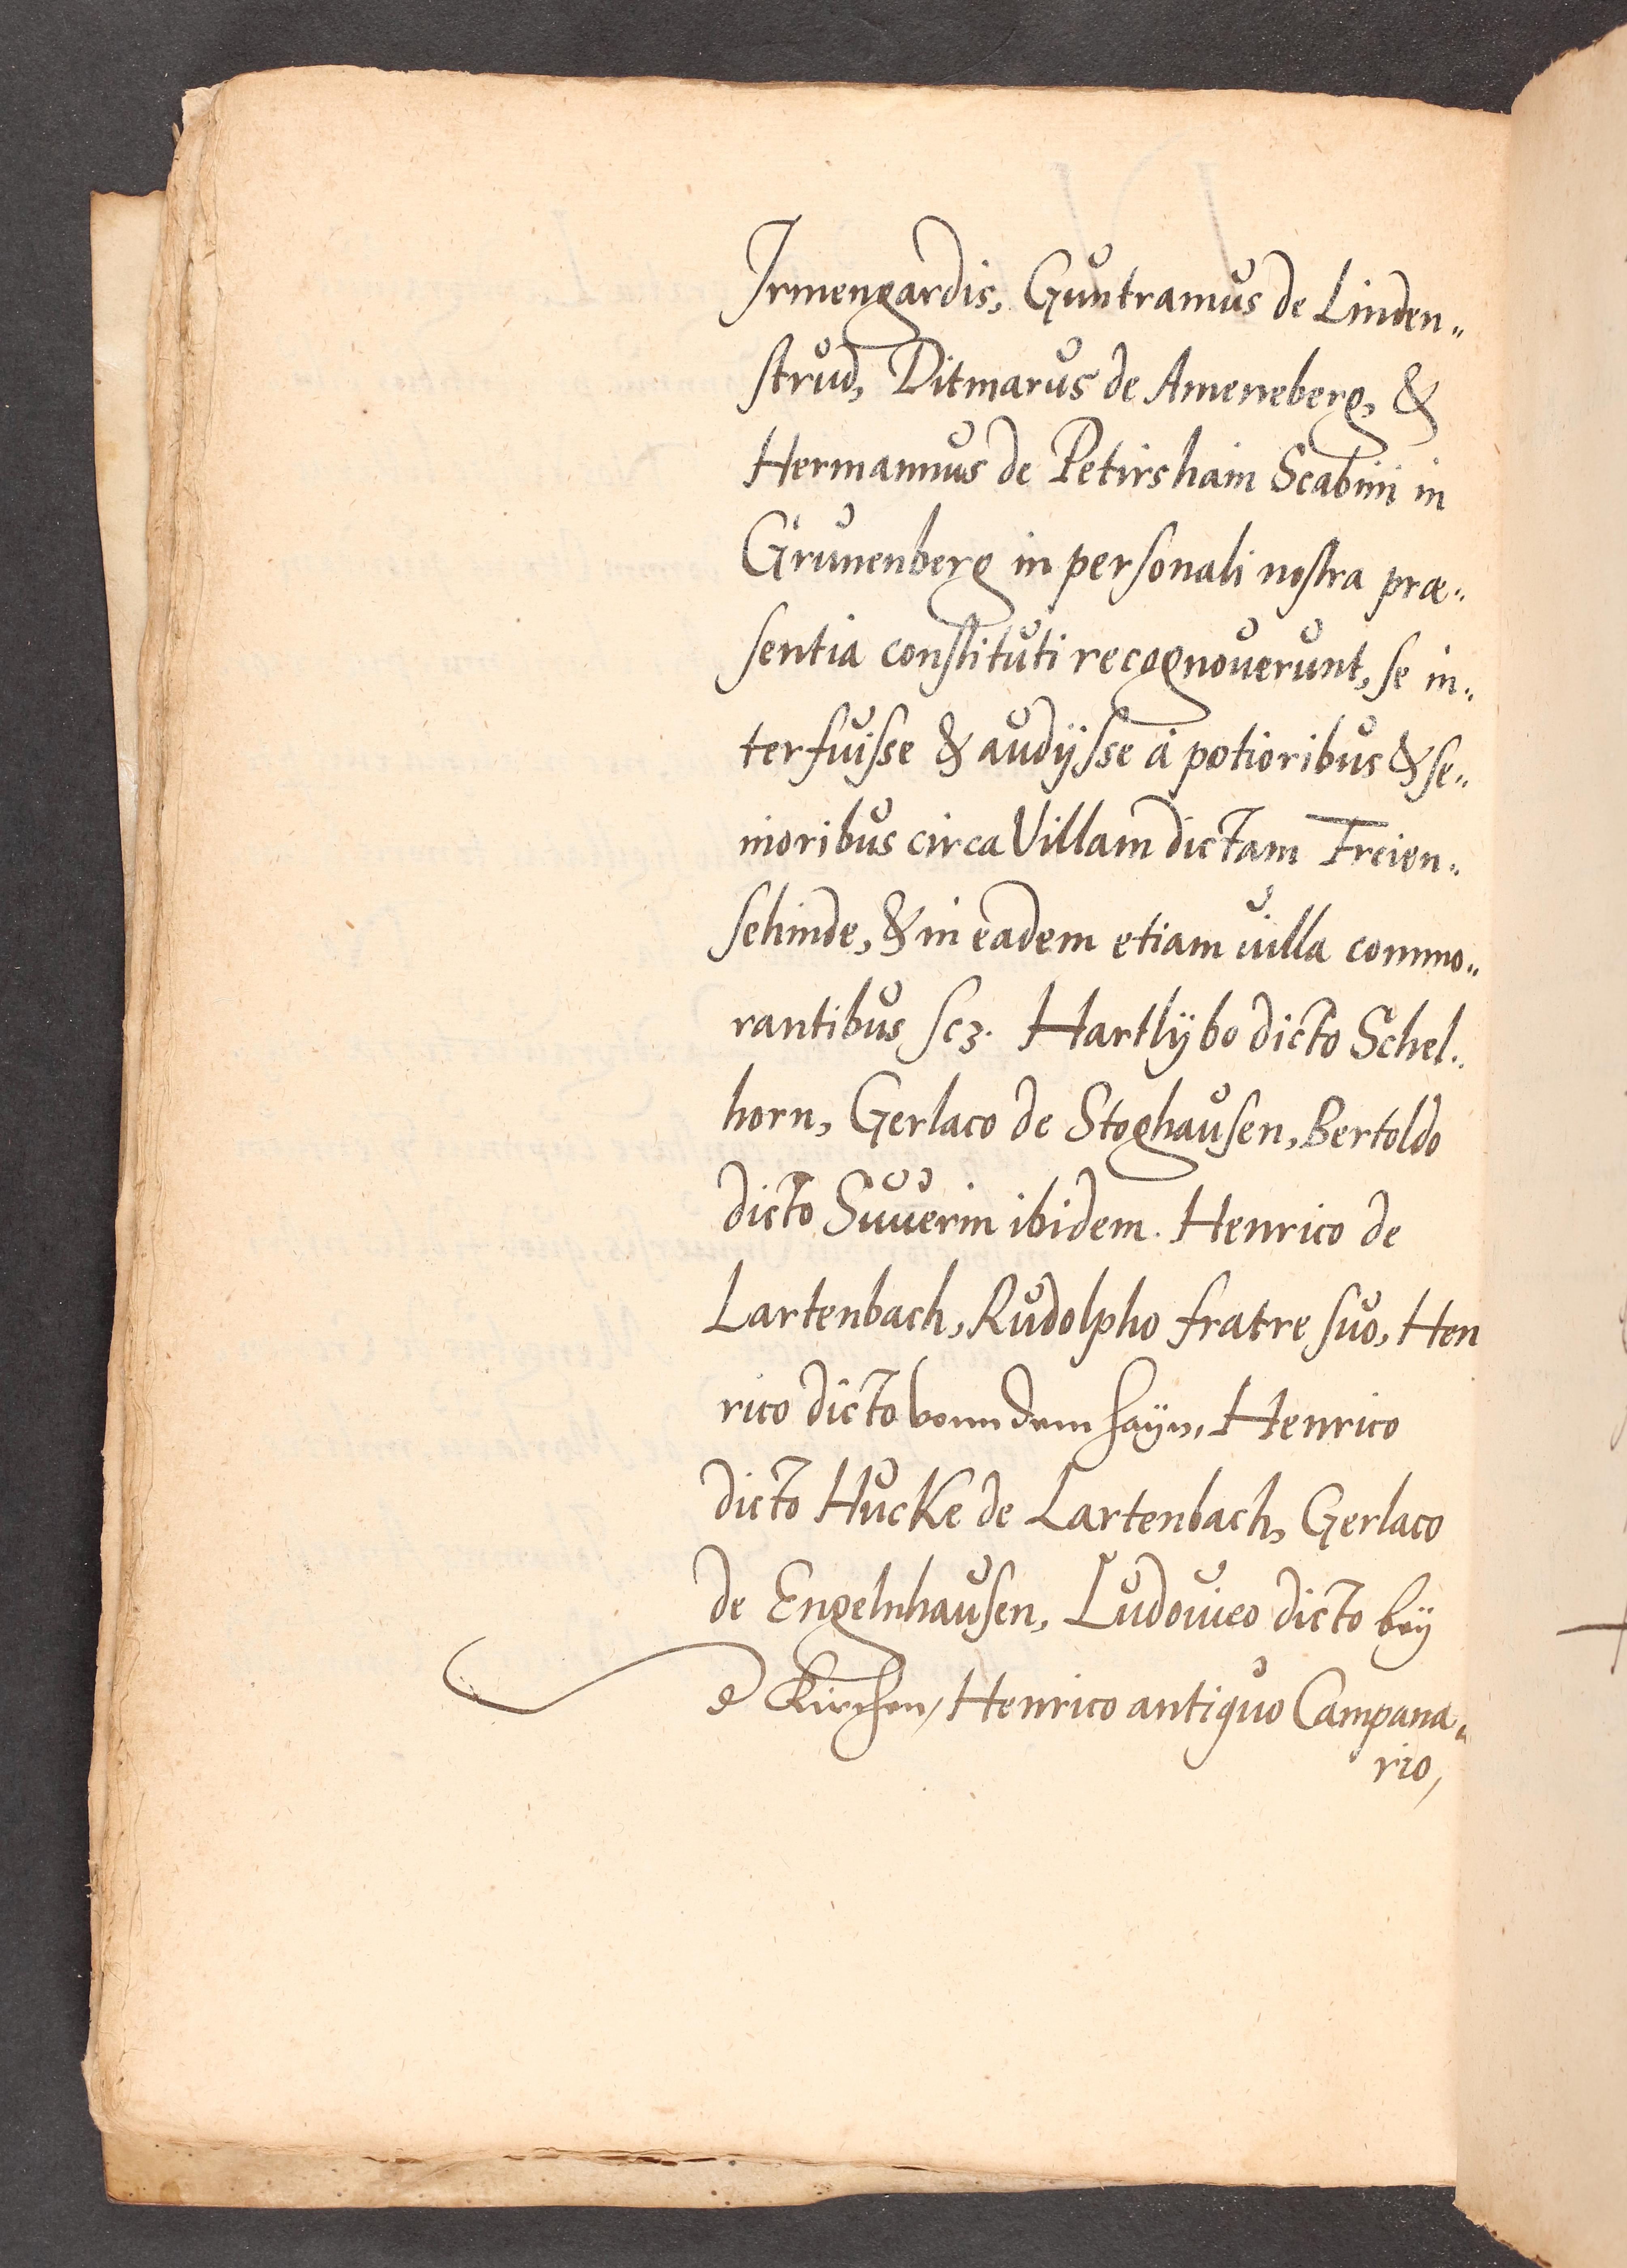 Irmengardis, Guntramus de Linden„
strud, Ditmarus de Ameneberg, &
Hermannus de Petirshain Scabini in
Grunenberg in personali nostra præ„
sentia constituti recognouerunt, se in„
terfuisse & audijsse à potioribus & se„
nioribus circa Villam dictam Freien„
sehinde, & in eadem etiam uilla commo„
rantibus scz. Hartlÿbo dicto Schel„
horn, Gerlaco de Stoghausen, Bertoldo
dicto Suuerin ibidem. Henrico de
Lartenbach, Rudolpho fratre suo, Hen
rico dicto vonn dem Hayn, Henrico
dicto Hucke de Lartenbach, Gerlaco
de Engelnhausen, Ludouico dicto beÿ
d Kirchen, Henrico antiquo Campana„
rio,